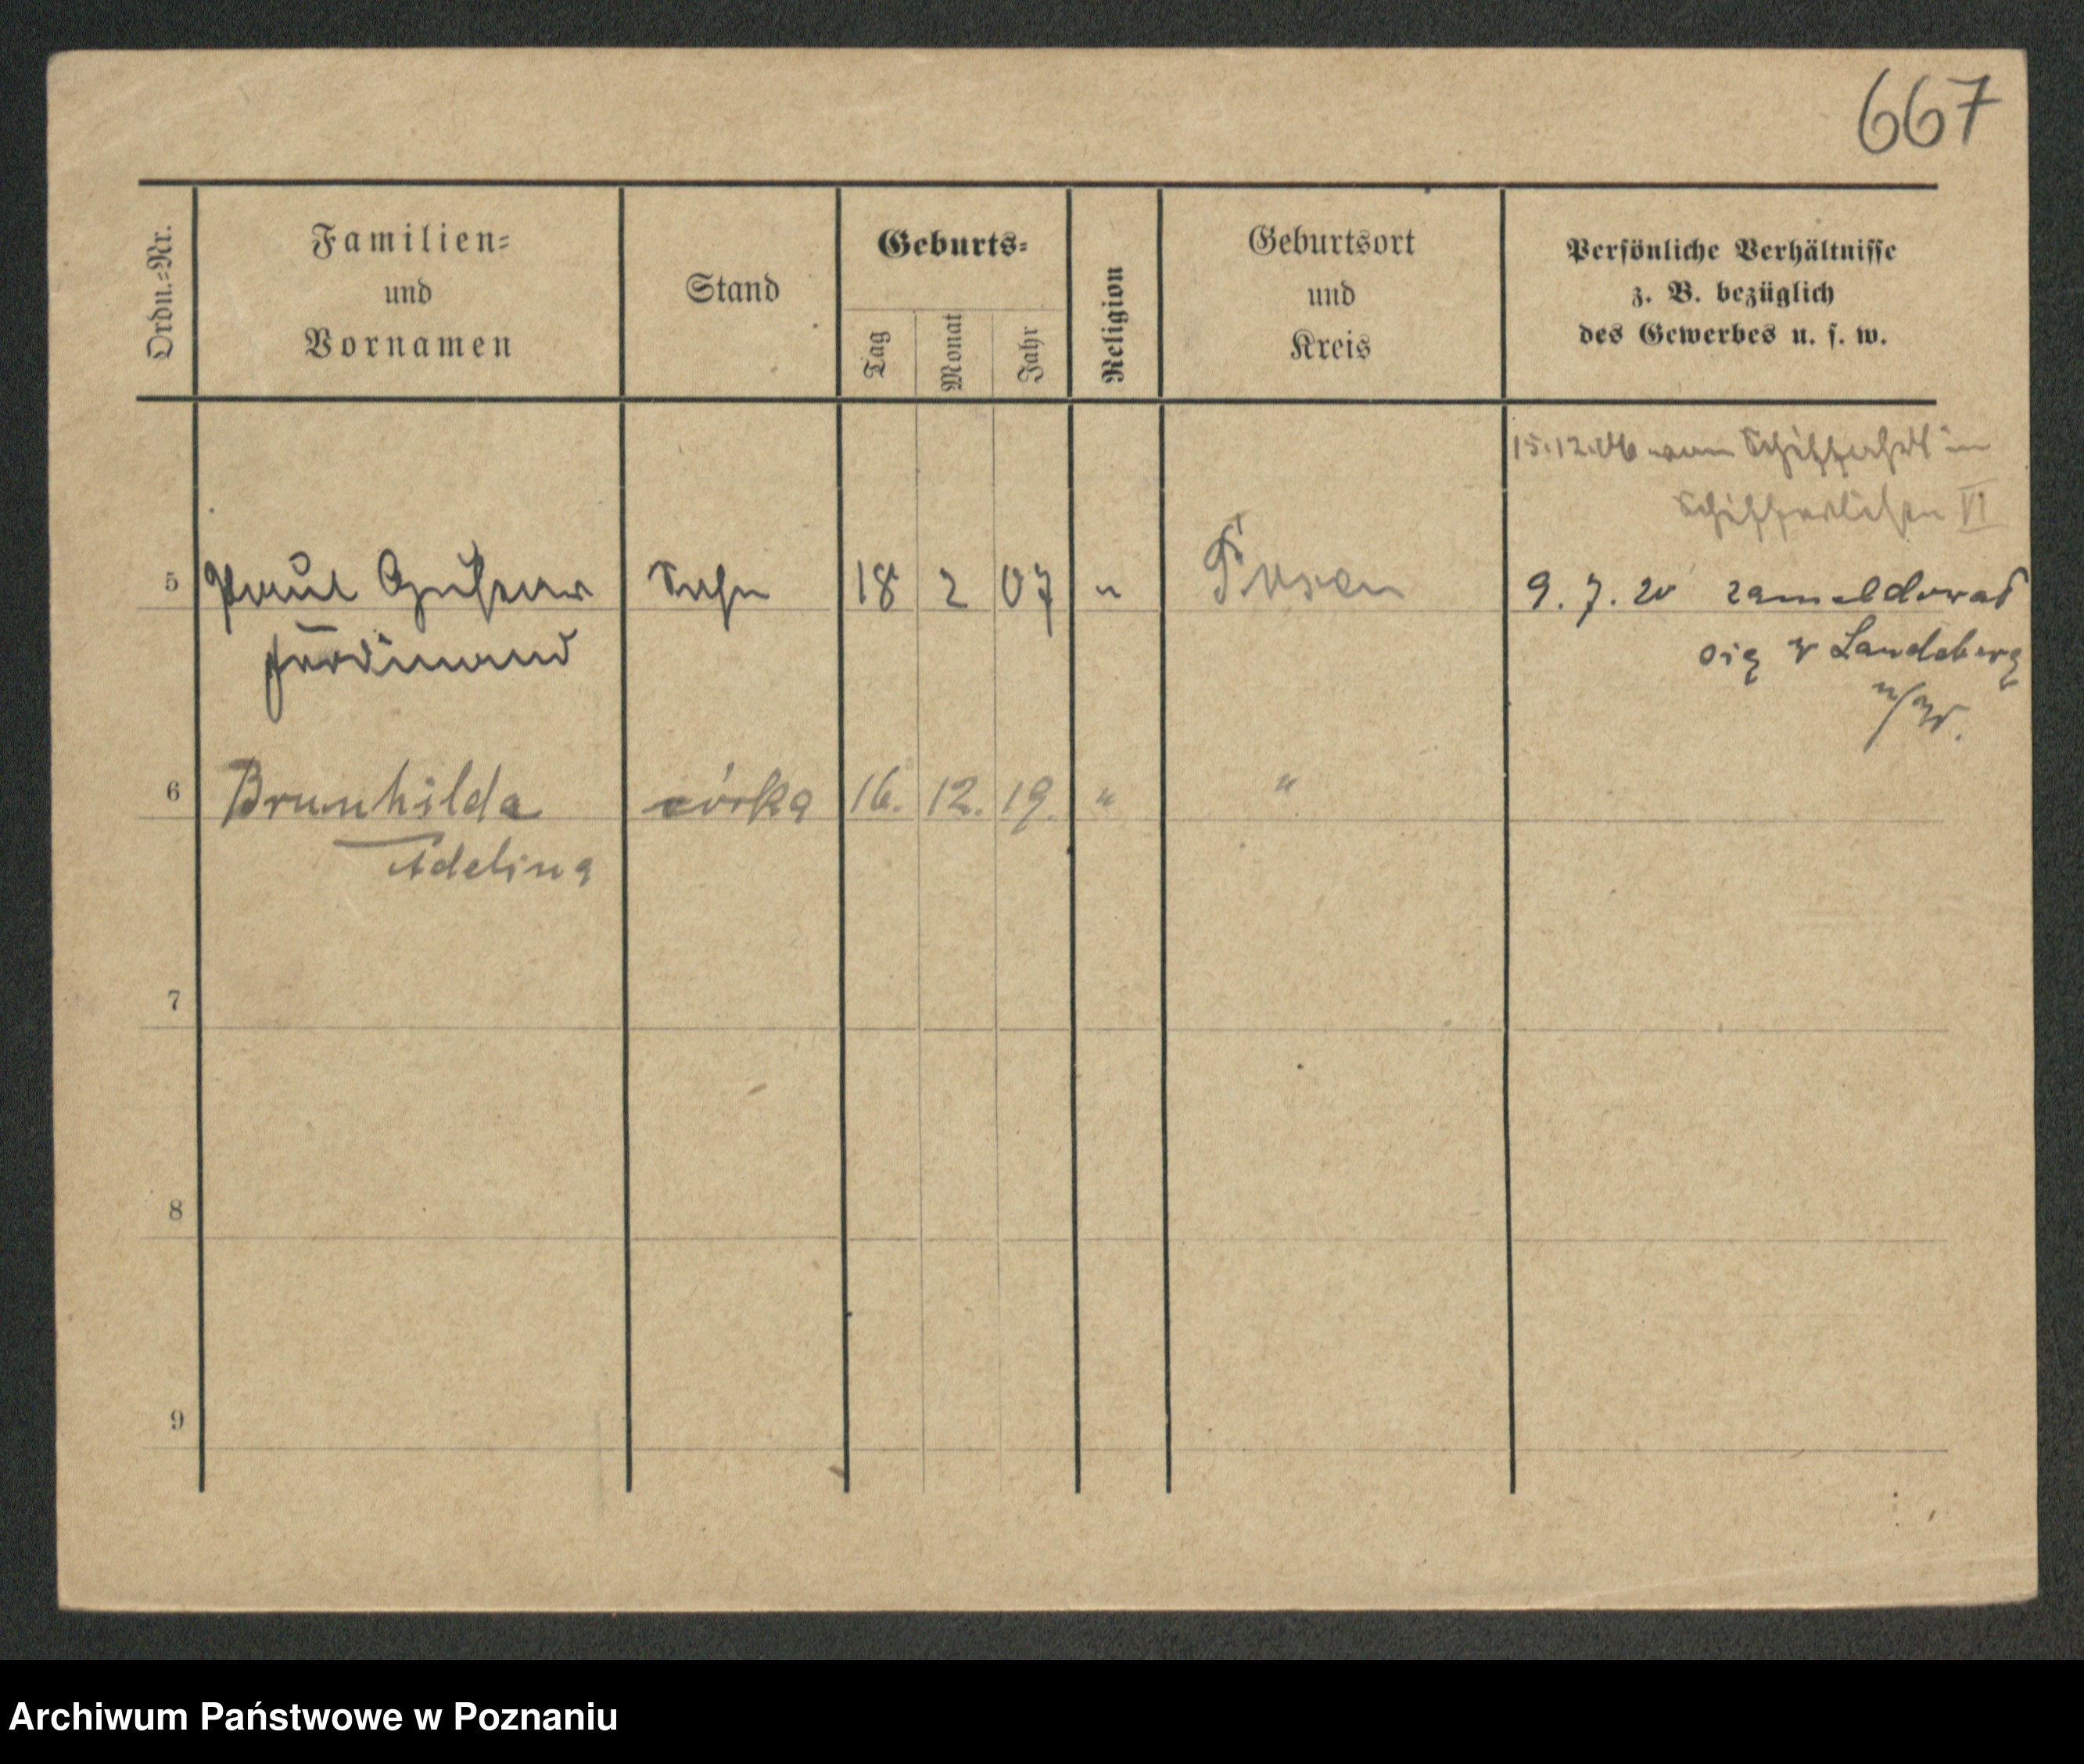 667
Ordn.=Nr.
Familien=
und
Vornamen
Stand
Geburts=
Tag
Monat
Jahr
Religion
Geburtsort
und
Kreis
Persönliche Verhältnisse
z. B. bezüglich
des Gewerbes u. s. w.
15.12.06 vom in
VI
5 Paul Sohn 18 2 07 " Posen 9. 7. 20 zameldował
Ferdinand
się w Landsberg
n/W.
6 Brunhilda córka 16. 12. 19. " "
Adelina
7
8
9
Archiwum Państwowe w Poznaniu